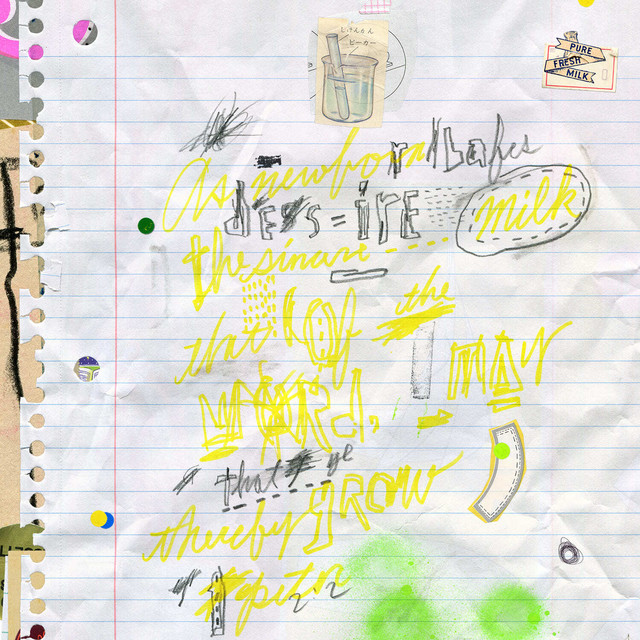 じっけんの
ビーカー
PURE
FRESH
MILK
As newborn babes
desire Milk
the sincere
that Of the
WORD, MAY
that ye
thereby GROW
1 peter 2:2